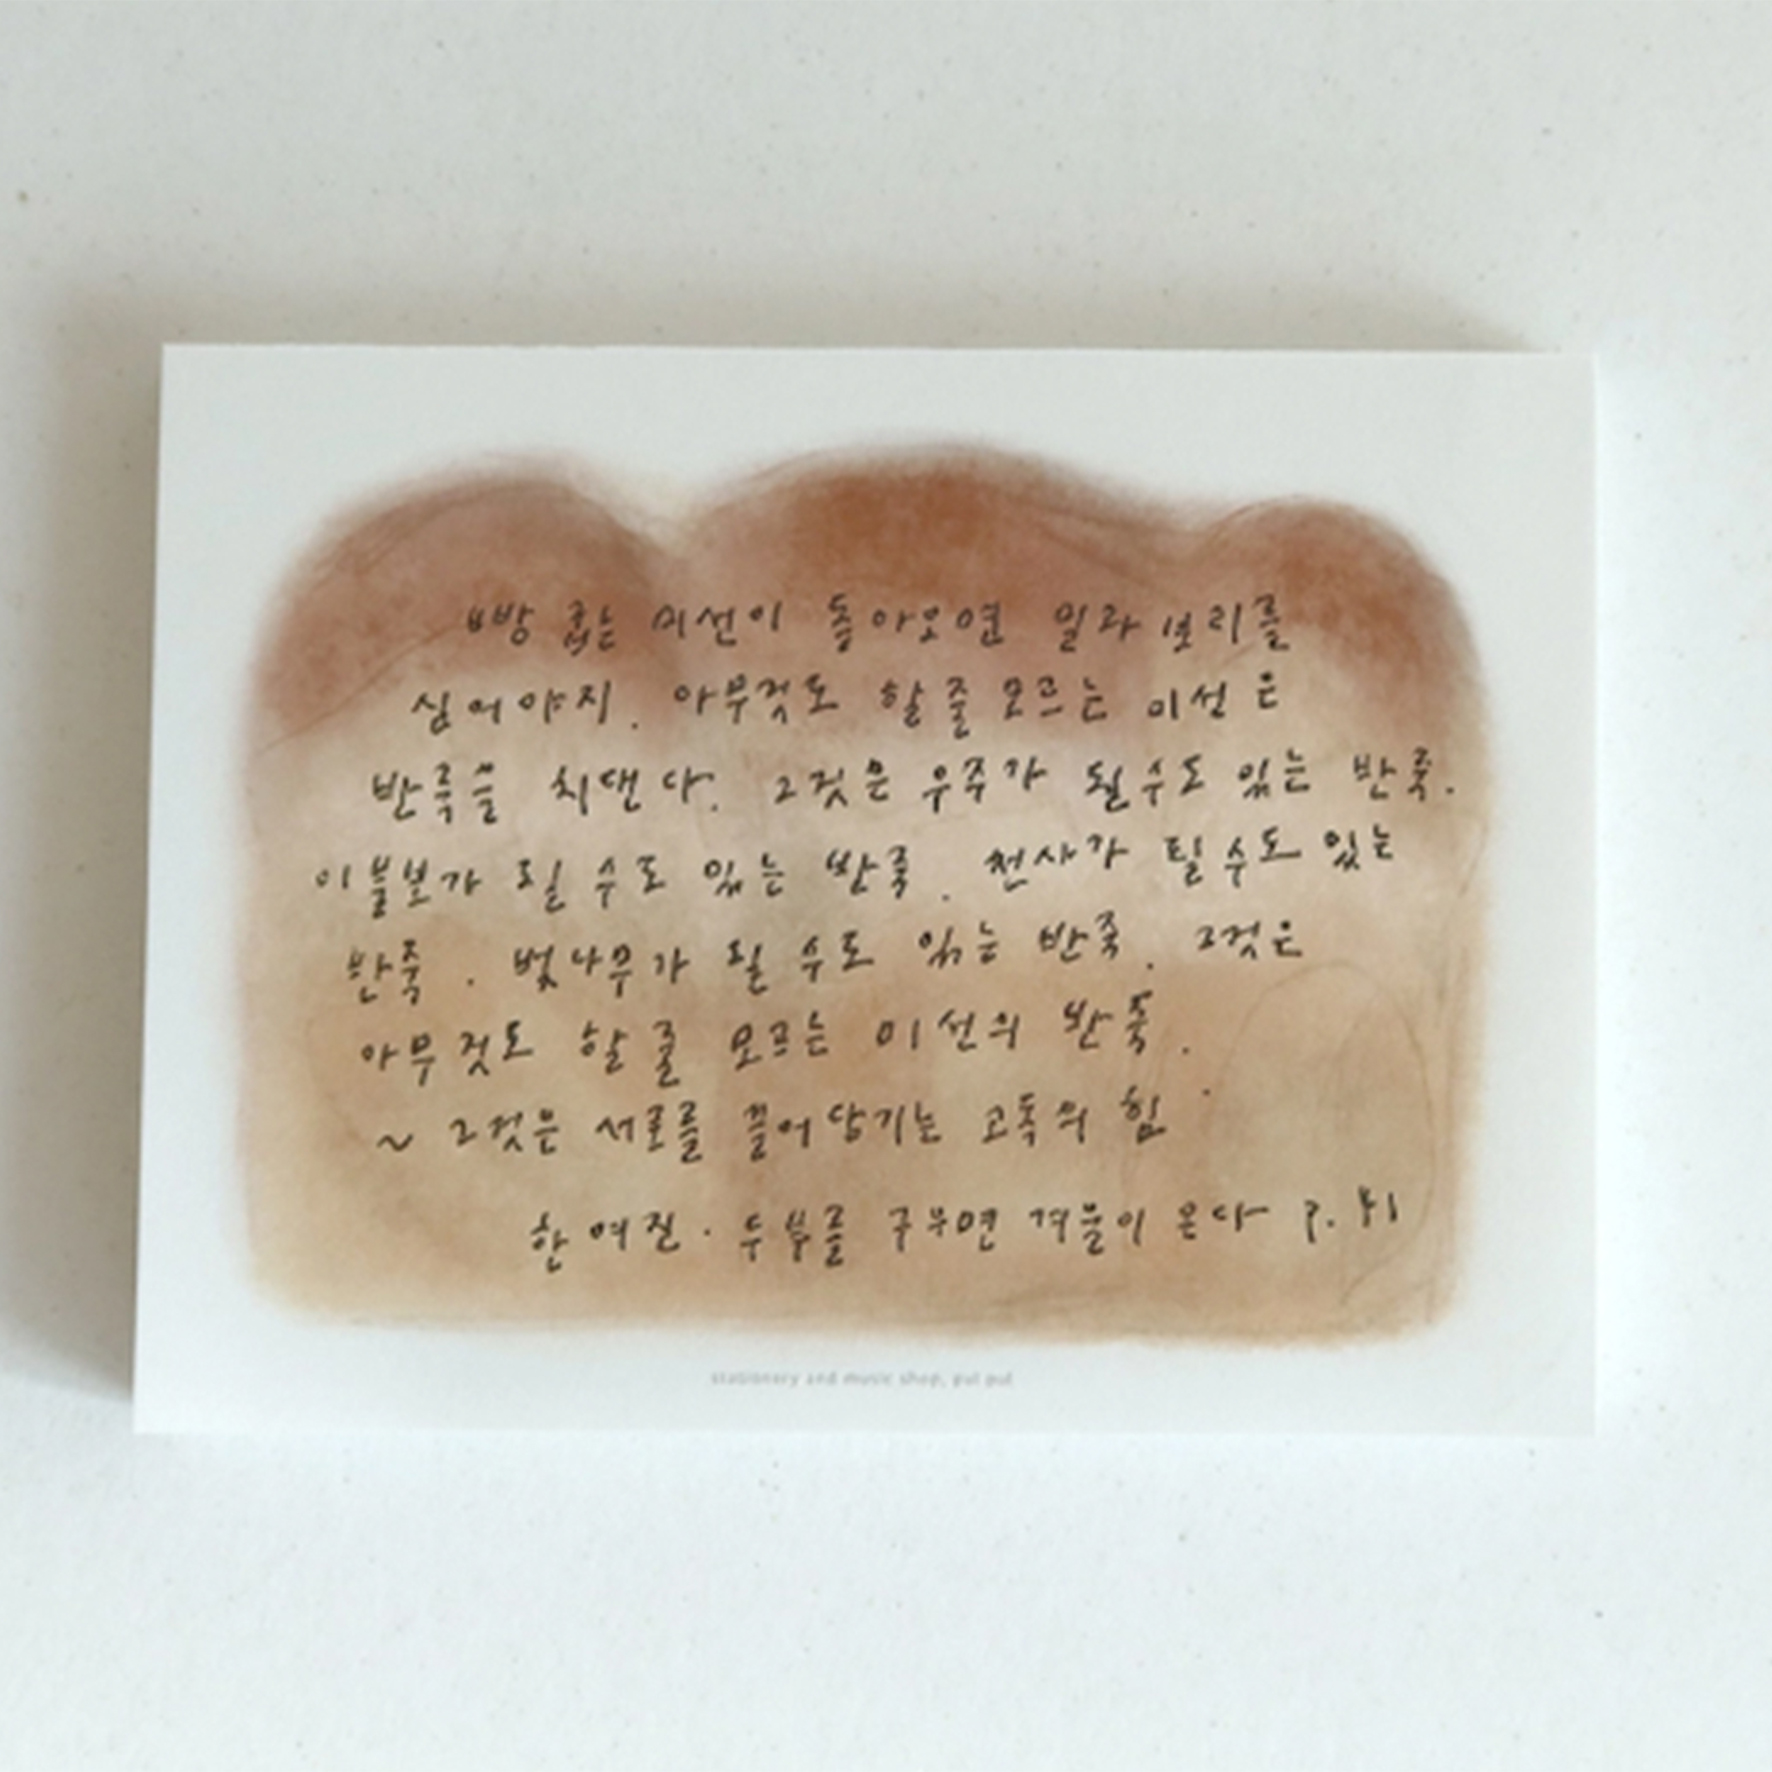 빵 굽는 미선이 돌아오면 밀과 보리를
심어야지. 아무것도 할 줄 모르는 미선은
반죽을 치댄다. 그것은 우주가 될 수도 있는 반죽.
이불보가 될 수도 있는 반죽. 천사가 될 수도 있는
반죽. 벚나무가 될 수도 있는 반죽. 그것은
아무것도 할 줄 모르는 미선의 반죽.
~ 그것은 서로를 끌어 담기는 고독의 힘
한여진. 두부를 구우면 겨울이 온다 P. 41
stationery and music shop, pul pul